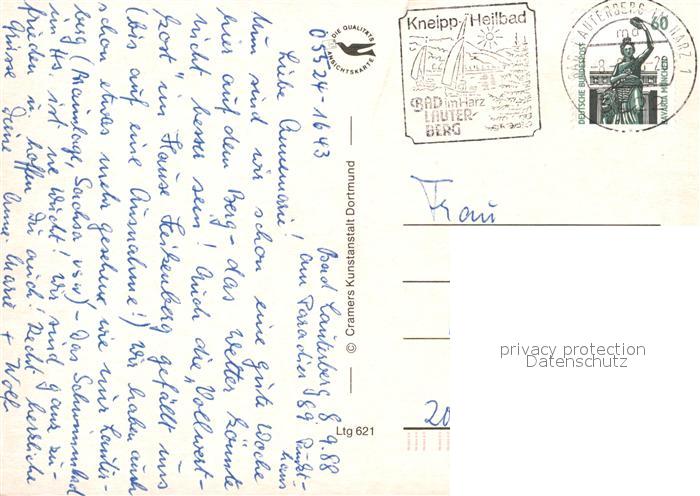 Bad Lauterberg 8.9.88
Am Paradies 89
05524-1643
Liebe Annemarie!
Nun sind wir schon eine gute Woche
hier auf dem Berg - das Wetter könnte
nicht besser sein! Auch die „Vollwert-
kost" im Hause Heikenberg gefällt uns
(bis auf eine Ausnahme!) Wir haben auch
schon etwas mehr gesehen wie nur Lauter-
berg (Braunlage, Sachsa usw) - Das Schwimmbad
im Hs. ist 'ne Wucht! Wir sind ganz zu-
frieden u. hoffen Du auch! Recht herzliche
Grüsse Deine Anne-Marie + Wolf
DIE QUALITÄTS
ANSICHTSKARTE
© Cramers Kunstanstalt Dortmund
Ltg 621
Kneipp-Heilbad
BAD im Harz
LAUTER-
BERG
LAUTERBERG IM HARZ 1
60
DEUTSCHE BUNDESPOST
BAVARIA MÜNCHEN
Frau
20
privacy protection
Datenschutz